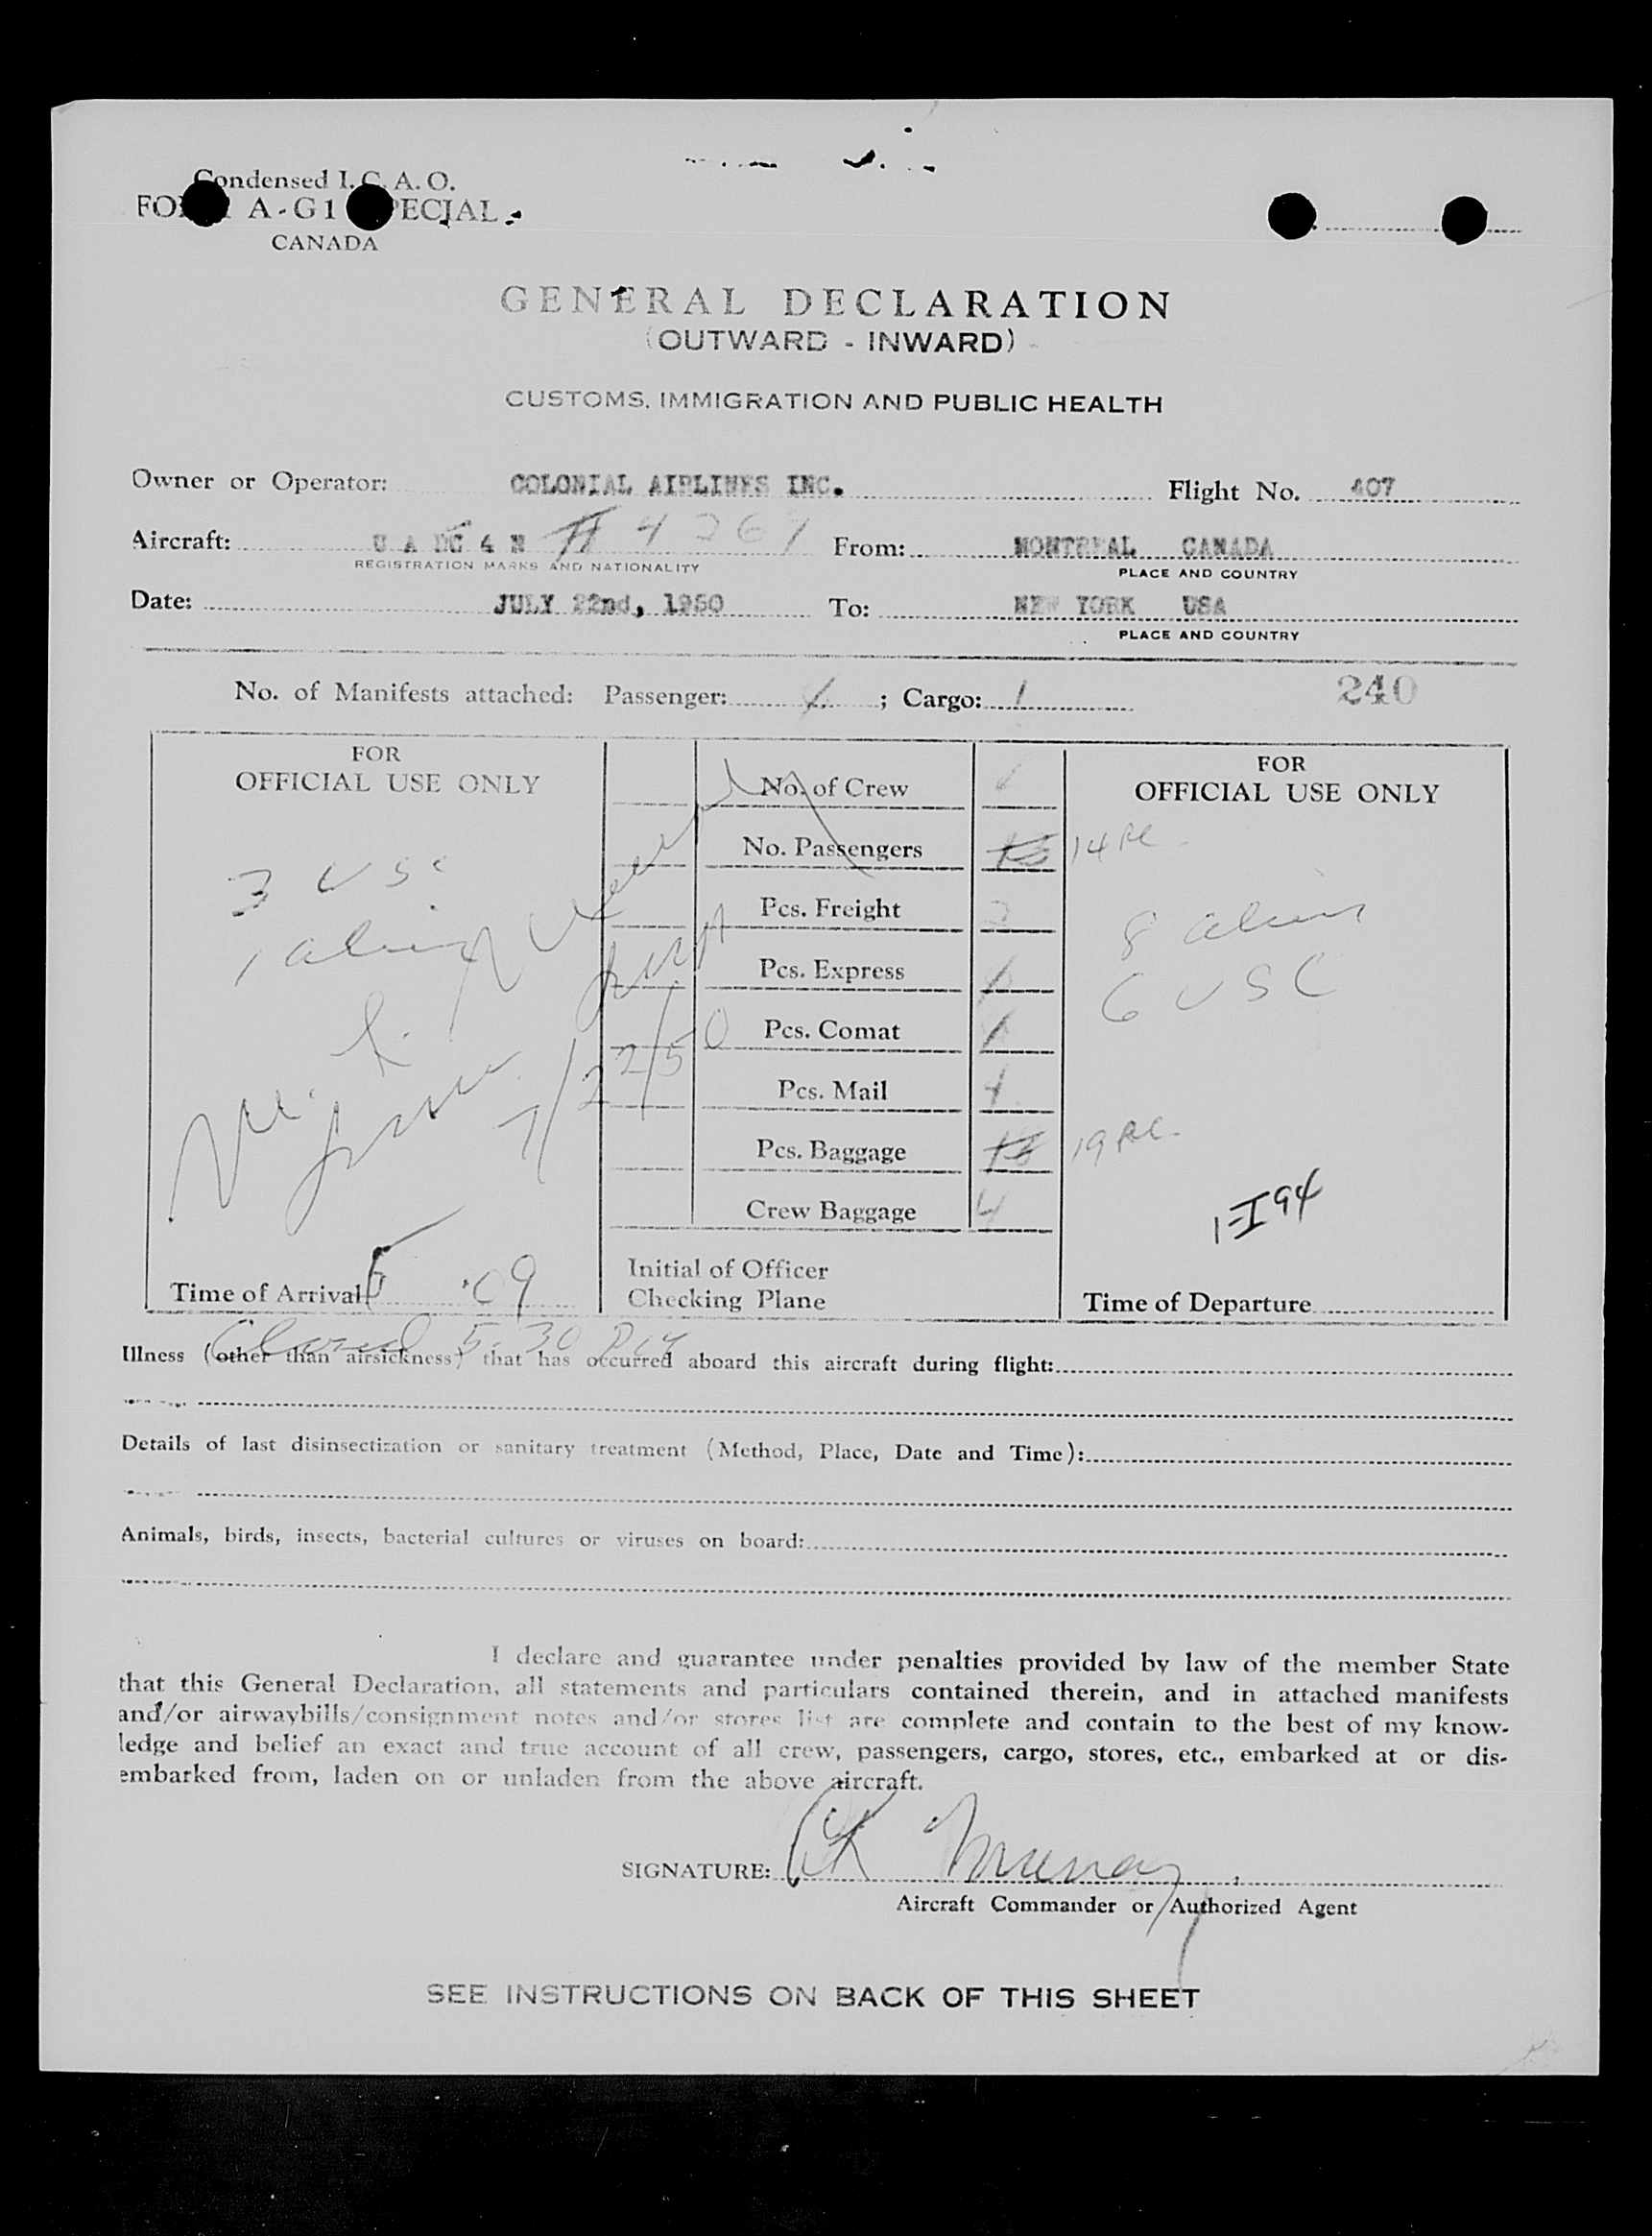 Condensed I. C. A. O.
A-G1
CANADA
GENERAL DECLARATION
(OUTWARD - INWARD)
CUSTOMS, IMMIGRATION AND PUBLIC HEALTH
Owner or Operator: COLONIAL AIRLINES INC. Flight No. 407
Aircraft: From: MONTREAL CANADA
REGISTRATION MARKS AND NATIONALITY PLACE AND COUNTRY
Date: JULY 22nd, 1950 To: NEW YORK USA
PLACE AND COUNTRY
No. of Manifests attached: Passenger: 1 ; Cargo: 1 240
FOR
OFFICIAL USE ONLY
3 USC
7/22/50
Time of Arrival 5 09
No. of Crew
No. Passengers 14
Pcs. Freight 2
Pcs. Express 1
Pcs. Comat 1
Pcs. Mail 4
Pcs. Baggage 19
Crew Baggage 4
Initial of Officer
Checking Plane
FOR
OFFICIAL USE ONLY
8 aliens
6 USC
1-I94
Time of Departure
Cleared 5:30
Illness (other than airsickness) that has occurred aboard this aircraft during flight:
Details of last disinsectization or sanitary treatment (Method, Place, Date and Time):
Animals, birds, insects, bacterial cultures or viruses on board:
I declare and guarantee under penalties provided by law of the member State
that this General Declaration, all statements and particulars contained therein, and in attached manifests
and/or airwaybills/consignment notes and/or stores list are complete and contain to the best of my know-
ledge and belief an exact and true account of all crew, passengers, cargo, stores, etc., embarked at or dis-
embarked from, laden on or unladen from the above aircraft.
SIGNATURE: Murray
Aircraft Commander or Authorized Agent
SEE INSTRUCTIONS ON BACK OF THIS SHEET